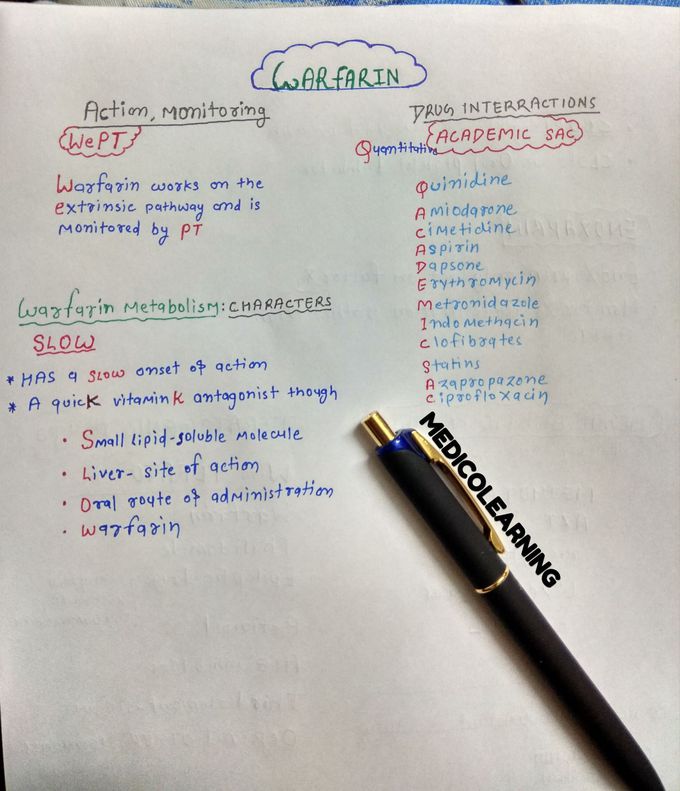 WARFARIN
Action, Monitoring
WePT
Warfarin works on the
extrinsic pathway and is
monitored by PT
Warfarin Metabolism: CHARACTERS
SLOW
* HAS a SLOW onset of action
* A quicK vitamin K antagonist though
• Small lipid-soluble Molecule
• Liver- site of action
• Oral route of administration
• Warfarin
DRUG INTERRACTIONS
Quantitative ACADEMIC SAC
Quinidine
Amiodarone
Cimetidine
Aspirin
Dapsone
Erythromycin
Metronidazole
Indomethacin
Clofibrates
Statins
Azapropazone
Ciprofloxacin
MEDICOLEARNING